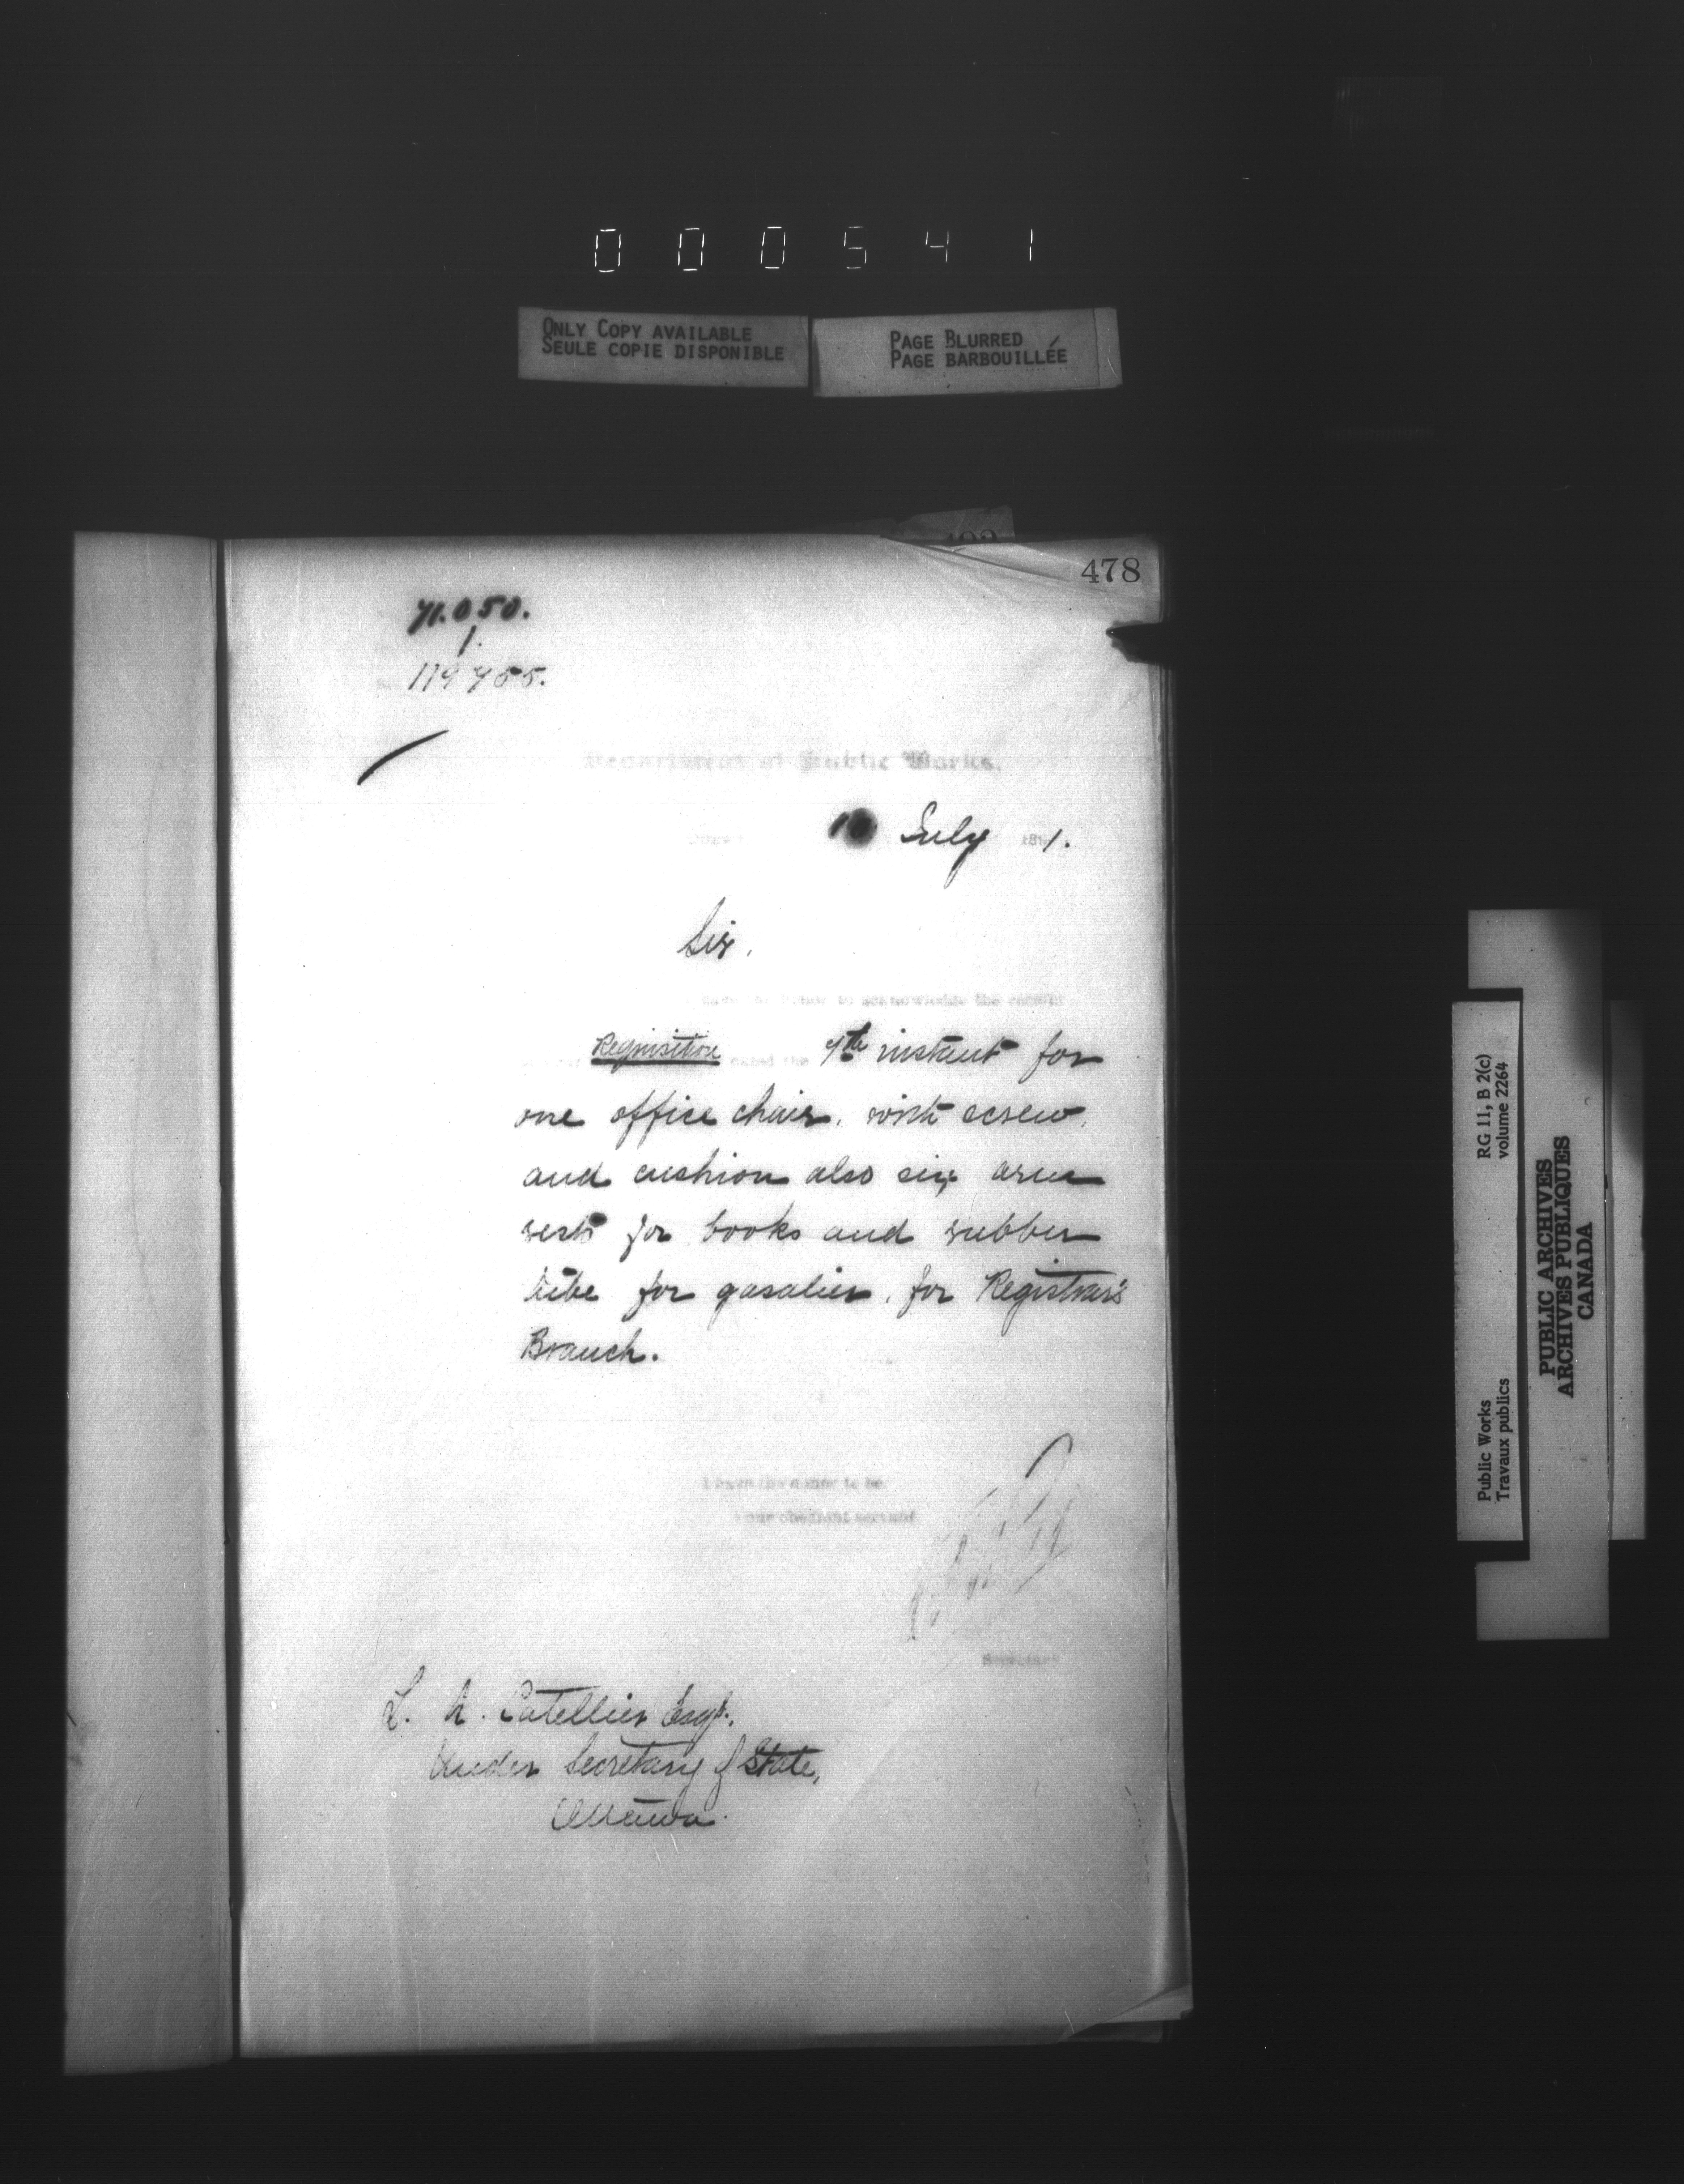 000541
ONLY COPY AVAILABLE
SEULE COPIE DISPONIBLE
PAGE BLURRED
PAGE BARBOUILLÉE
478
71.050.
1.
119755.
Department of Public Works.
10 July 1891.
Sir,
have the honor to acknowledge the receipt
Requisition dated the 7th instant for
one office chair, with screw,
and cushion also six arm
rests for books and rubber
tube for gasalier, for Registrar's
Branch.
I have the honor to be
your obedient servant
Secretary
L. A. Catellier Esqr.,
Under Secretary of State,
Ottawa.
Public Works
Travaux publics
RG 11, B 2(c)
volume 2264
PUBLIC ARCHIVES
ARCHIVES PUBLIQUES
CANADA